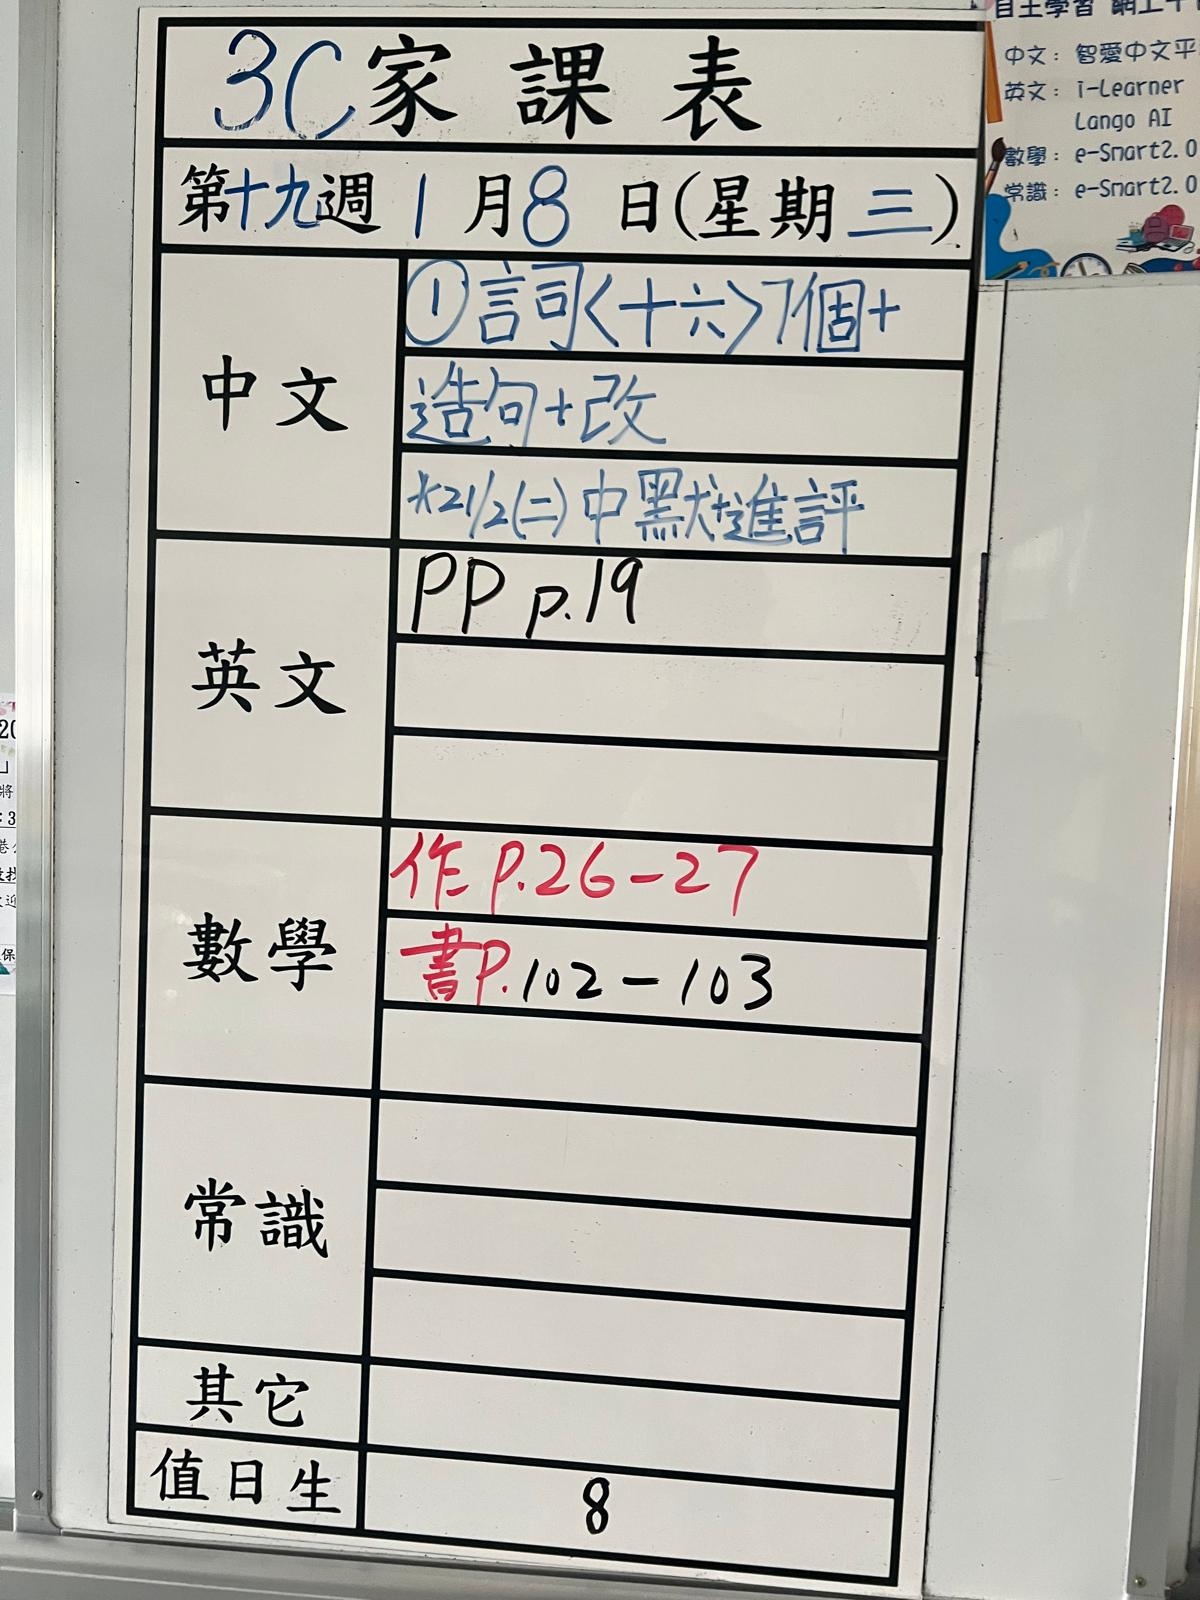 3C家課表
第十九週 1月8日(星期三)
中文
①詞〈十六〉7個+
造句+改
*21/2(二)中默進評
英文
PP p.19
數學
作 P.26-27
書P.102-103
常識
其它
值日生
8
自主學習 網上平
中文: 智愛中文平
英文: i-Learner
Lango AI
數學: e-Smart2.0
常識: e-Smart2.0